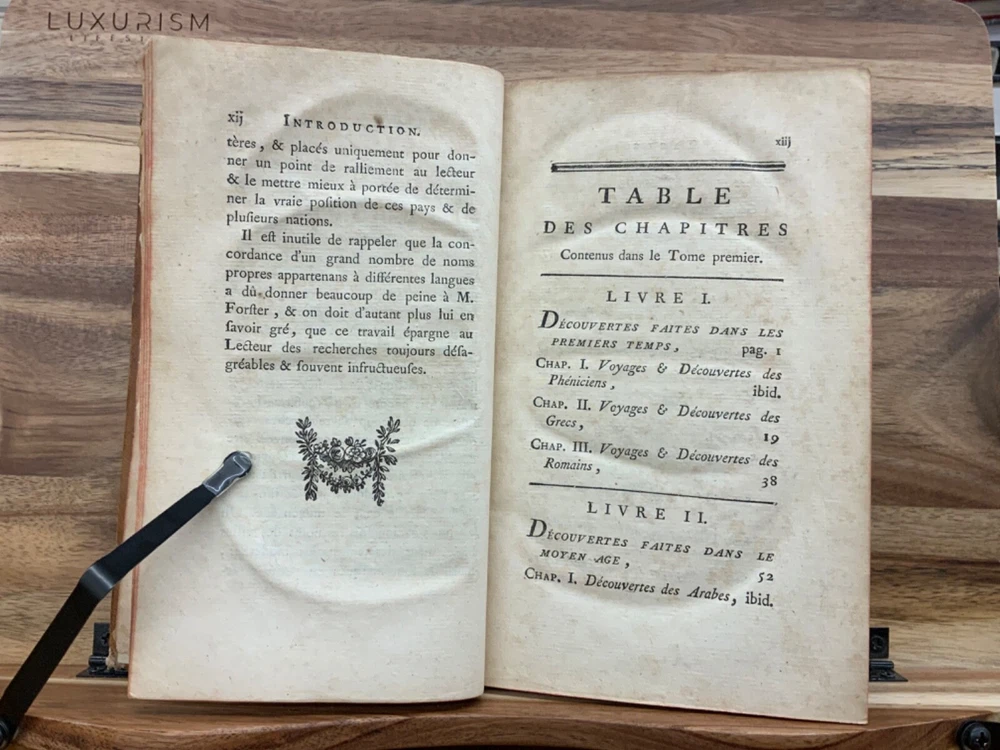 LUXURISM
xij INTRODUCTION.
tères, & placés uniquement pour don-
ner un point de ralliement au lecteur
& le mettre mieux à portée de détermi-
ner la vraie poſition de ces pays & de
pluſieurs nations.
Il eſt inutile de rappeler que la con-
cordance d'un grand nombre de noms
propres appartenans à différentes langues
a dû donner beaucoup de peine à M.
Forſter, & on doit d'autant plus lui en
ſavoir gré, que ce travail épargne au
Lecteur des recherches toujours déſa-
gréables & ſouvent infructueuſes.
xiij
TABLE
DES CHAPITRES
Contenus dans le Tome premier.
LIVRE I.
DÉCOUVERTES FAITES DANS LES
PREMIERS TEMPS, pag. 1
CHAP. I. Voyages & Découvertes des
Phéniciens, ibid.
CHAP. II. Voyages & Découvertes des
Grecs, 19
CHAP. III. Voyages & Découvertes des
Romains, 38
LIVRE II.
DÉCOUVERTES FAITES DANS LE
MOYEN AGE, 52
CHAP. I. Découvertes des Arabes, ibid.